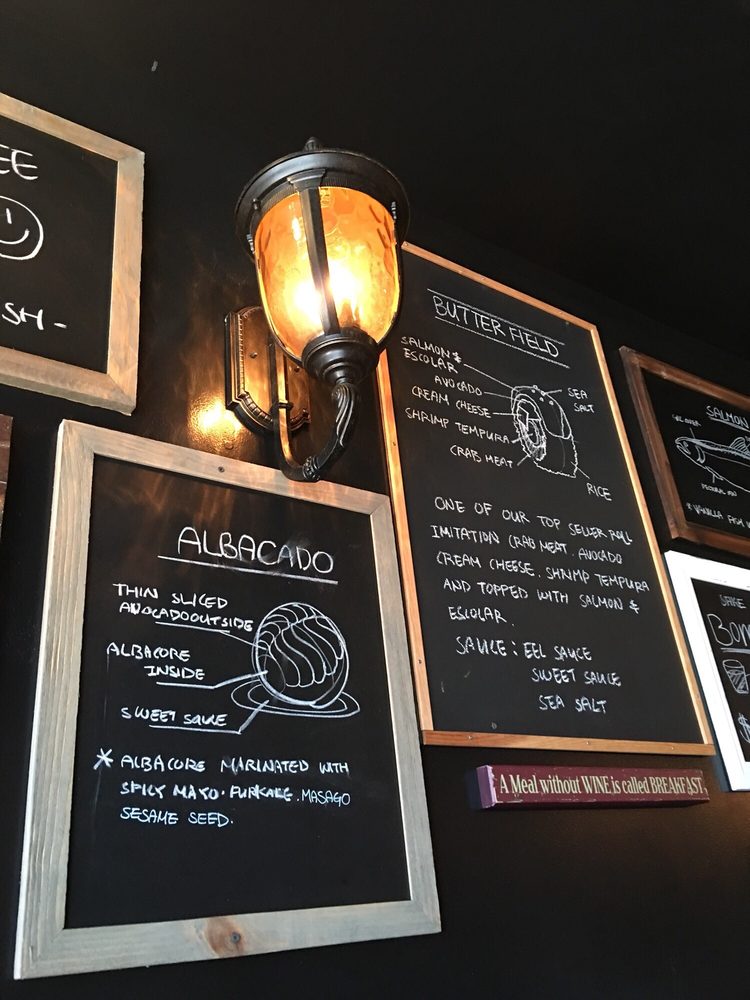 EE
SH-
ALBACADO
THIN SLICED
AVOCADO OUTSIDE
ALBACORE
INSIDE
SWEET SAUCE
* ALBACORE MARINATED WITH
SPICY MAYO. FURKAKE. MASAGO
SESAME SEED.
BUTTER FIELD
SALMON &
ESCOLAR
AVOCADO
CREAM CHEESE
SHRIMP TEMPURA
CRAB MEAT
SEA
SALT
RICE
ONE OF OUR TOP SELLER ROLL
IMITATION CRAB MEAT. AVOCADO
CREAM CHEESE. SHRIMP TEMPURA
AND TOPPED WITH SALMON &
ESCOLAR.
SAUCE: EEL SAUCE
SWEET SAUCE
SEA SALT
A Meal without WINE is called BREAKFAST
SALMON
SAKE